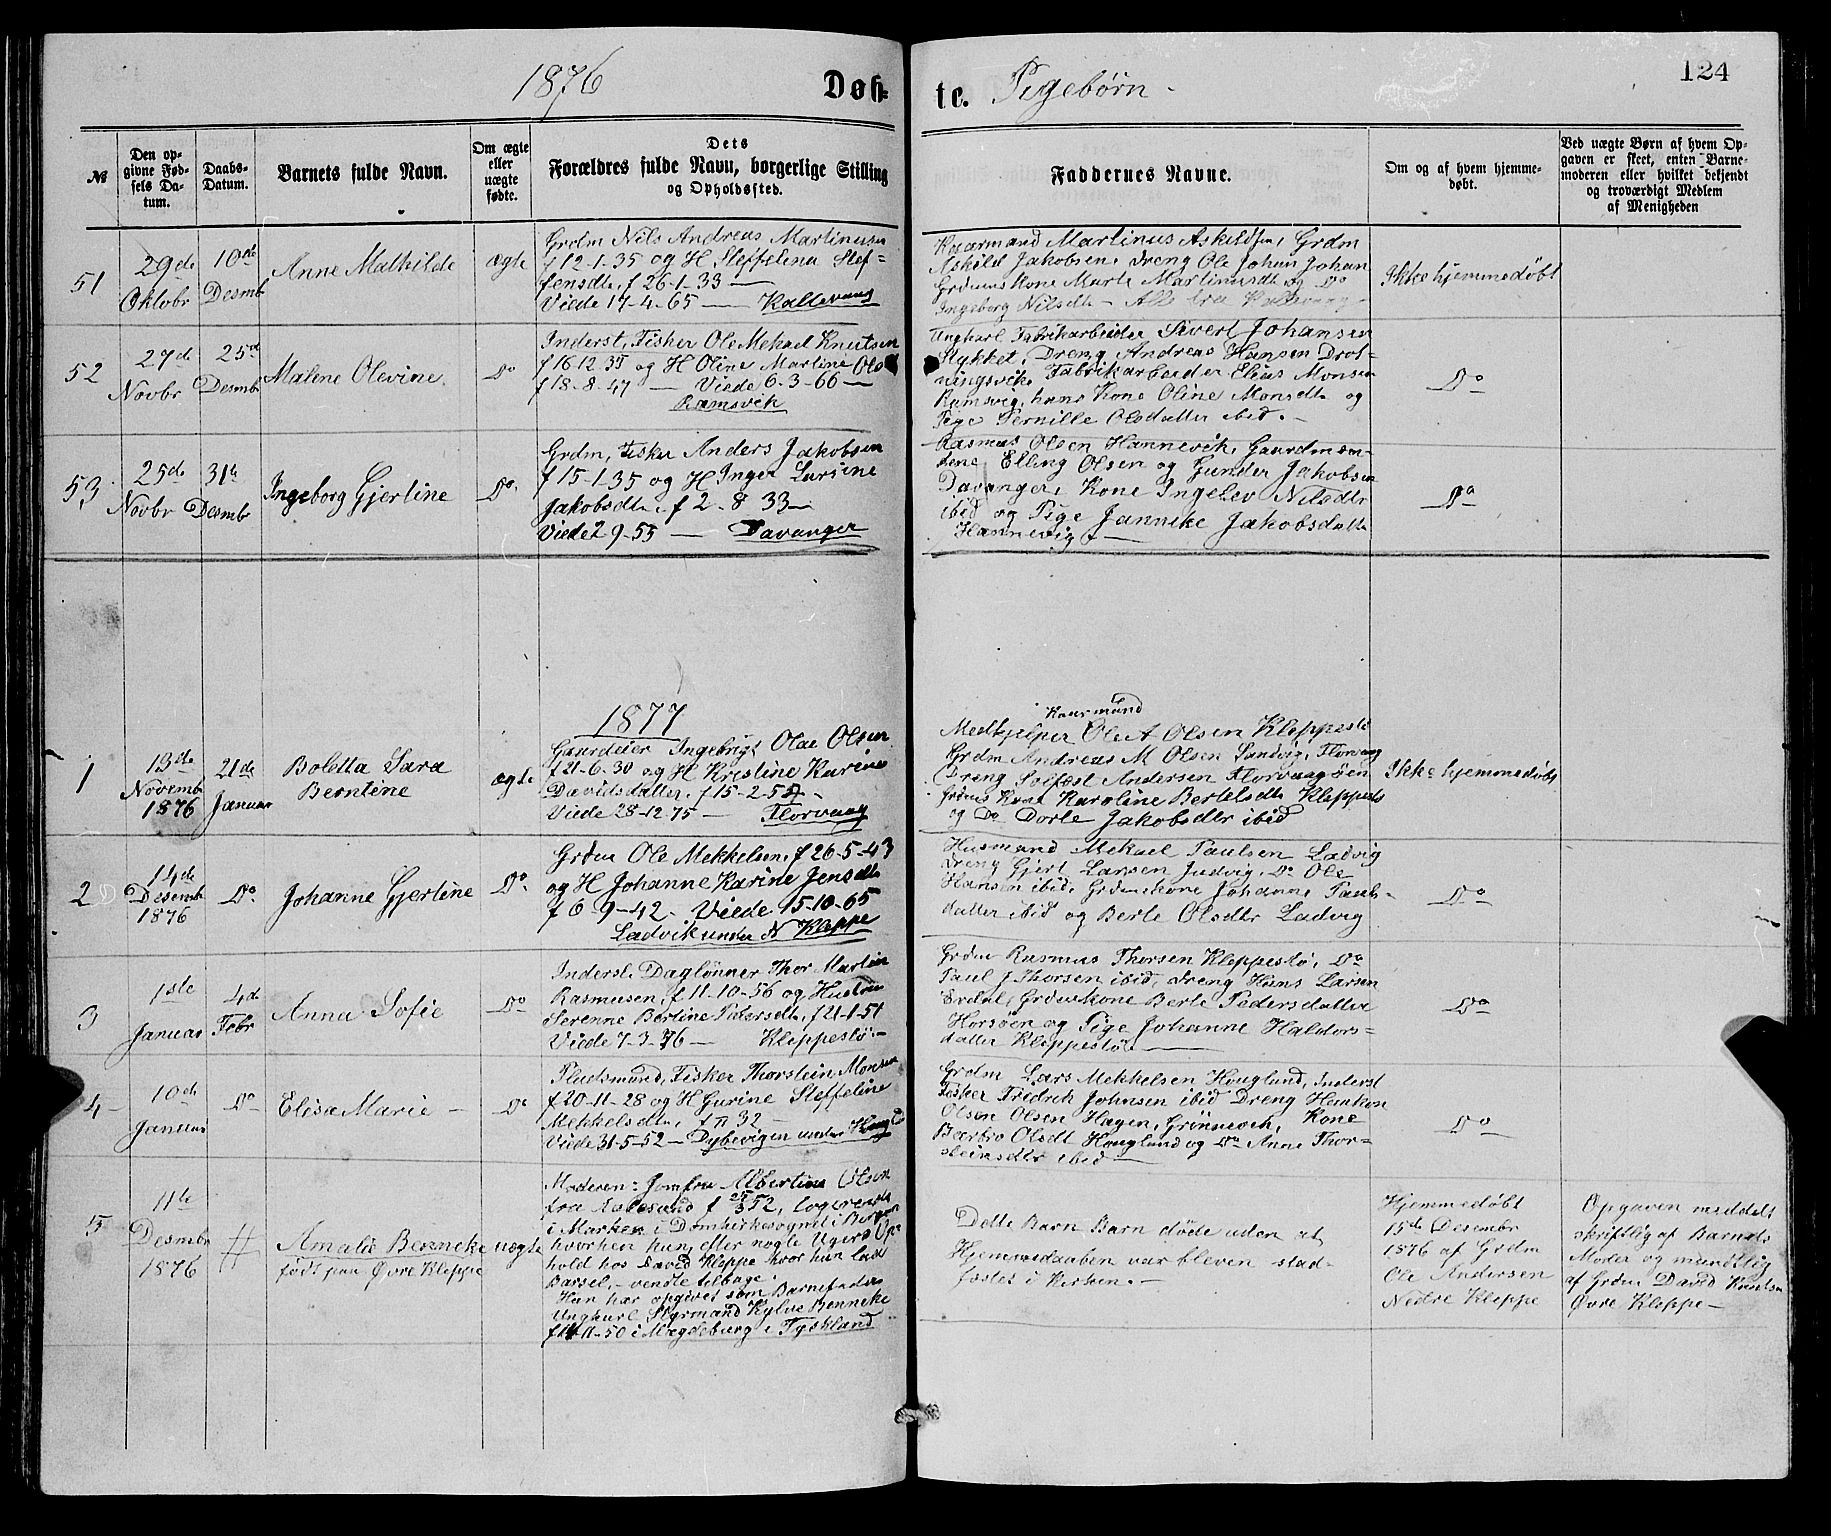 1876 Døb-
te. Pigebørn -
124
№
Den op-
givne Fød-
sels Da-
tum.
Daabs-
Datum.
Barnets fulde Navn.
Om ægte
eller
uægte
fødte.
Dets
Forældres fulde Navn, borgerlige Stilling
og Opholdssted.
Faddernes Navne.
Om og af hvem hjemme-
døbt.
Ved uægte Børn af hvem Op-
gaven er skeet, enten Barne-
moderen eller hvilket bekjendt
og troværdigt Medlem
af Menigheden
51
29de
Oktobr
10de
Desmb
Anne Mathilde
ægte
Grdm Nils Andreas Martinusen
f 12-1-35 og H Steffelina Stef=
fensdtr, f 26-1-33 —
Viede 17-4-65 — Kallevaag
Martinus Askildsen, Grdm
Askild Jakobsen, Dreng Ole Johan Johan
Grdmuskone Marte Martinusdtr og Do
Ingeborg Nilsdtr - Alle fra Kallevaag -
Ikke hjemmedøbt
52
27de
Novbr
25de
Desmb
Malene Olevine.
Do
Inderst, Fisker Ole Mekael Knutsen
f 16-12-35 og H Oline Martine Ols
f 18-8-47 — Viede 6-3-66 —
Ramsvik
Ungkarl Fabrikarbeider Sivert Johansen
Stykket, Dreng Andreas Hansen Drot-
ningsvik, Fabrikarbeider Elias Monsen
Ramsvig, hans Kone Oline Monsdtr og
Pige Pernille Olsdatter ibid. -
Do
53
25de
Novbr
31te
Desmb
Ingeborg Gjertine
Do.
Grdm, Fisker Anders Jakobsen
f 15-1-35 og H Inger Lursine
Jakobsdtr, f 2-8-33 —
Viede 2-9-55 — Davanger
Rasmus Olsen Hannevik, Gaardmæn-
dene Elling Olsen og Gunder Jakobsen
Davanger, Kone Ingelev Nilsdtr
ibid og Pige Jannike Jakobsdatter
Hannevig —
Do
1877
1
13de
Novemb
1876
21de
Januar
Boletta Sara
Berntine
ægte
Gaardeier Ingebrigt Olai Olsen
f 21-6-30 og H Kristine Karine
Davidsdatter, f 15-2-5
Viede 28-12-75 — Florvaag
Kaarmand
Medhjelper Ole A Olsen Kleppestø
Grdm Andreas M Olsen Sandvig, Florvaag
Dreng Andersen Florvaagøen
Grdms Kone Karoline Bertelsdtr Kleppestø
og Do Dorte Jakobsdtr ibid
Ikke hjemmedøbt
2
14de
Desemb
1876
Do.
Johanne Gjertine
Do.
Grdm Ole Mekkelsen, f 26-5-43
og H Johanne Karine Jensdtr
f 6-9-42. Viede 15-10-65
Ladvik under N Kleppe
Husmand Mekael Paulsen Ladvig
Dreng Gjert Larsen Do Ole
Hansen ibid, Grdmskone Johanne Pauls-
datter ibid og Berte Olsdtr Ladvig
Do
3
1ste
Januar
4de
Febr
Anna Sofie
Do
Inderst. Daglønner Thor Martin
Rasmusen, f 11-10-56 og Hustru
Serenne Bertine Petersdtr, f 21-1-51
Viede 7-3-76 — Kleppestø -
Grdm Rasmus Thorsen Kleppestø, Do
Paul J Thorsen ibid, Dreng Hans Larsen
Erdal, Grdmskone Berte Pedersdatter
Horsøen og Pige Johanne Haldors=
datter Kleppestø —
Do
4
10de
Januar
Do
Elisa Marie -
Do
Pladsmand, Fisker Thorstein Monsen
f 20-11-28 og H Gurine Steffeline
Mekkelsdtr, f 32 —
Viede 31-5-52 — Dybevigen under
Grdm Lars Mekkelsen Houglund, Inderst
Fisker Fredrik Johnsen ibid Dreng Haakon
Olsen Olsen Hagen, Kone
Barbro Olsdt Houglund og Do Anne Thor-
steinsdtr ibid —
Do
5
11te
Desmbr
1876
#
Amalie Benneke
født paa Øvre Kleppe
uægte
Moderen: Jomfru Albertine Olsen
fra Aalesund f 52, logerende
i Marken i Domkirkesognet i Bergen
hvorhen hun, efter nogle Ugers Op-
hold hos David Kleppe hvor hun laa i
Barsel, - vendte tilbage.
Hun har opgivet som Barnefader
Ungkarl, Styrmand Benneke
f -11-50 i Magdeburg i Tyskland
Dette Barn Barn døde uden at
Hjemmedaaben var bleven stad-
fæstet i Kirken. -
Hjemmedøbt
15de Desembr
1876 af Grdm
Ole Andersen
Nedre Kleppe
Opgaven meddelt
skriftlig af Barnets
Moder og mundtlig
af Grdm David Knutsen
Øvre Kleppe -